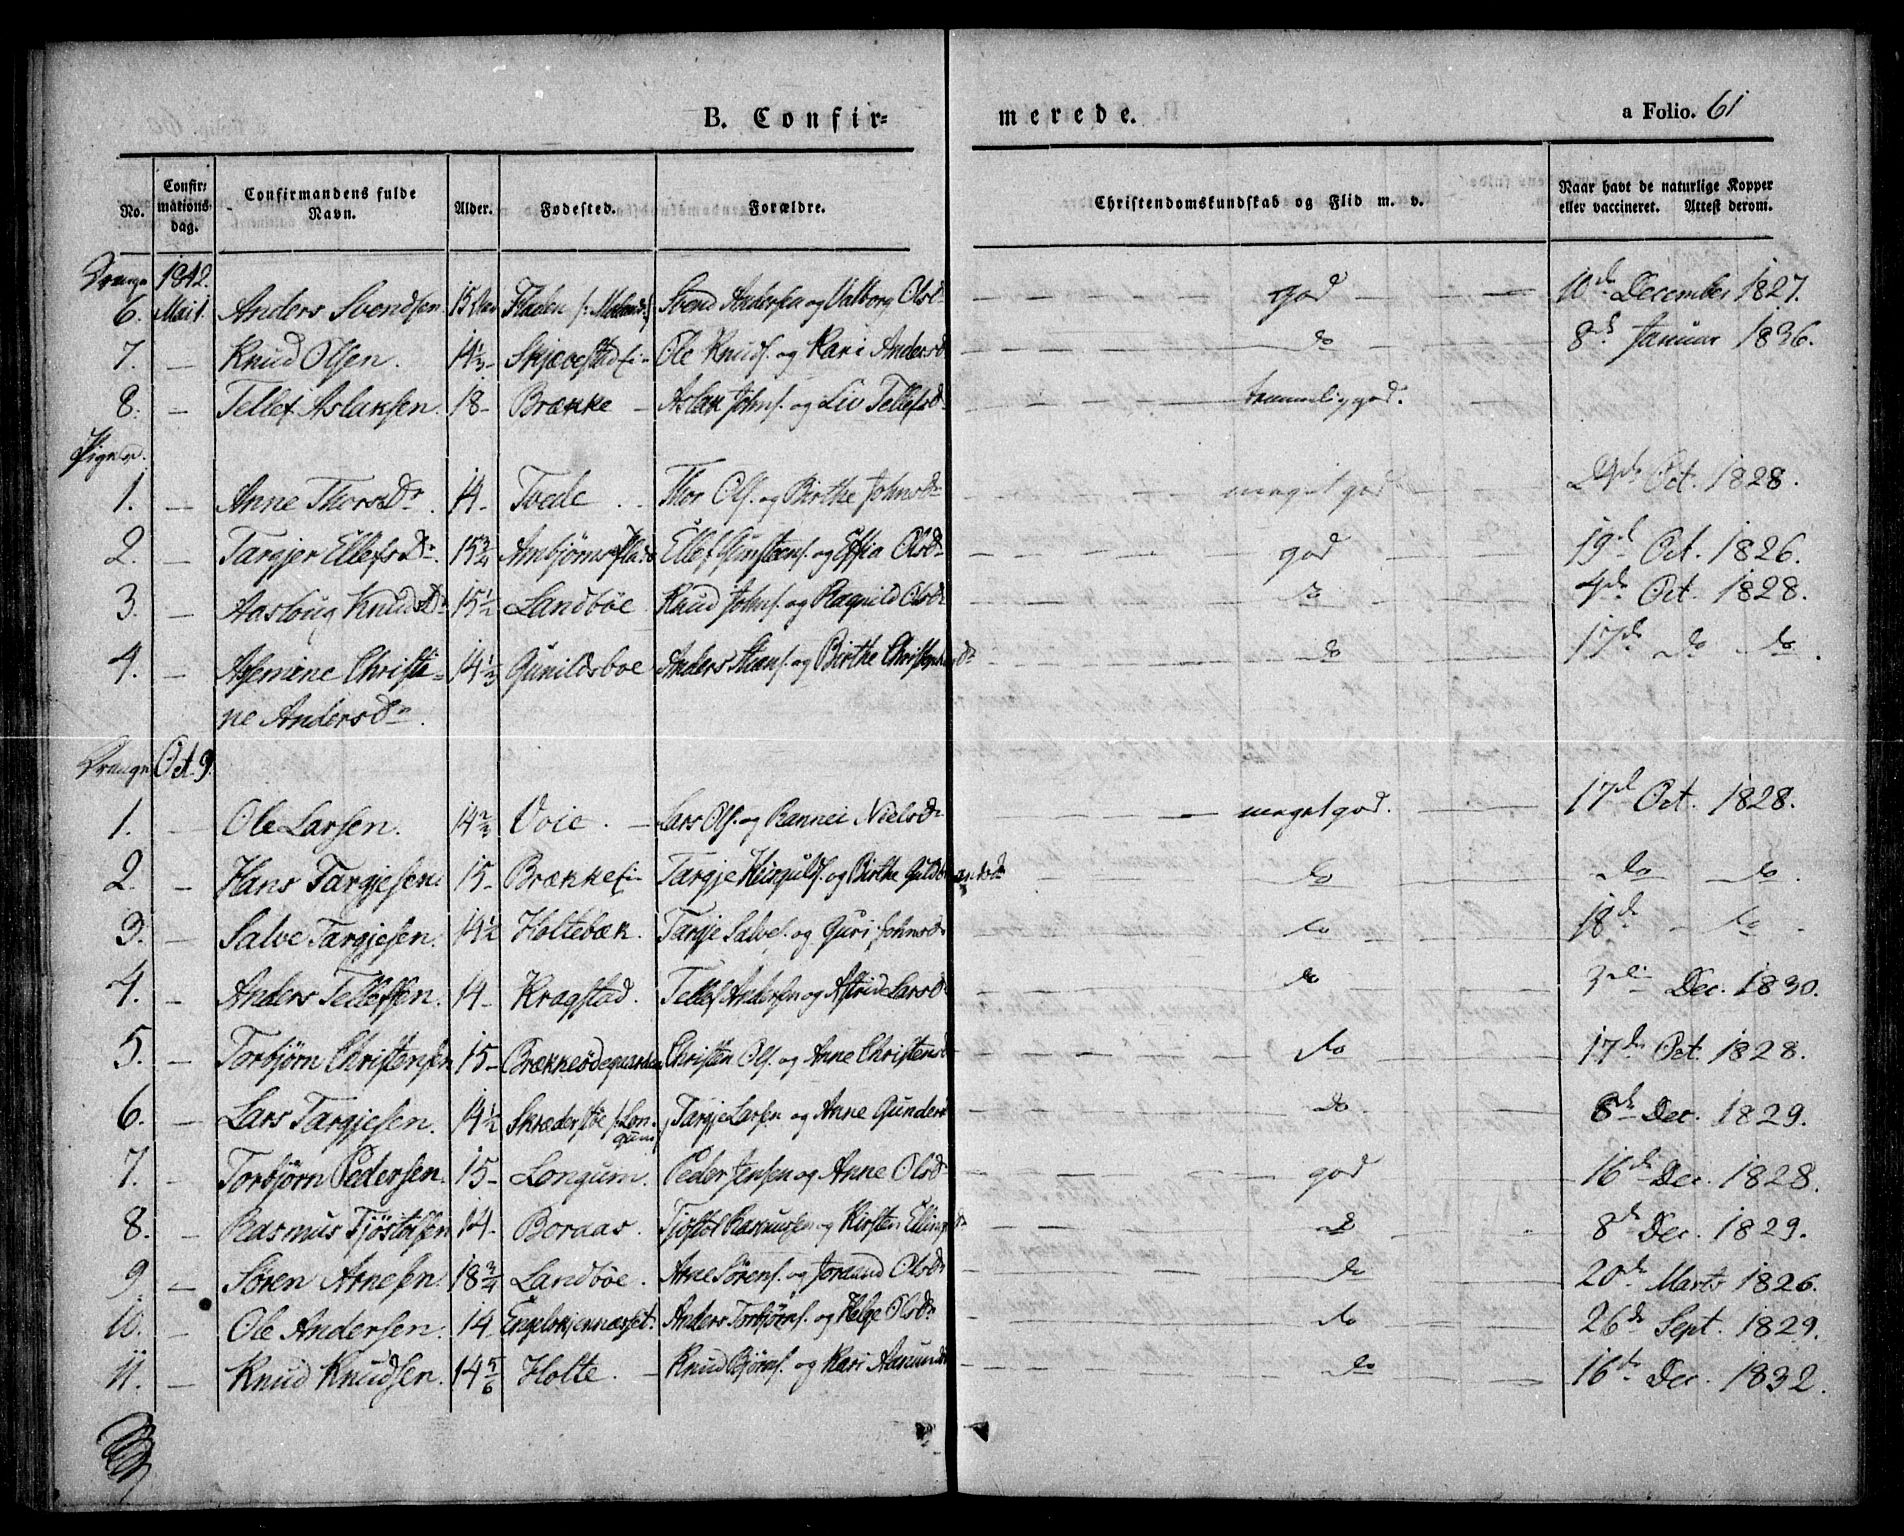 B. Confir= merede. a Folio. 61
No. Confir= mations dag. Confirmandens fulde Navn. Alder. Fødested. Forældre. Christendomskundskab og Flid m. v. Naar havt de naturlige Kopper eller vaccineret. Attest derom.
Drenge 1842.
6. Mai 1. Anders Svendsen 15 Svend Andersen og Valborg Olsdr god 10de December 1827.
7. — Knud Olsen. 14⅓ Skjævestad Ole Knuds. og Kari Andersd do 8de Januar 1836.
8. — Tellef Aslaksen. 18 Brække Aslak Johns. og Liv Tellefsd temmelig god.
Piger.
1. — Anne Thorsdr. 14 Tvede Thor Ols. og Birthe Johnsdr meget god Oct. 1828.
2. — Targjer Ellefsdr. 15¾ Ellef og Olsdr god 19de Oct. 1826.
3. — Aaslaug Knudsdr 15½ Landbøe Knud Johns. og Ragnild Olsd do 4de Oct. 1828.
4. — Christi= 14⅓ Gunildsboe Anders og Birthe do 17de do do.
ne Andersdr.
Drenge Oct. 9.
1. — Ole Larsen. 14⅔ Voie. Lars Ols. og Rannei Nielsdr meget god. 17de Oct. 1828.
2. — Hans Targjesen. 15 Brække Targje og Birthe Guldbrandsdr do do do.
3. — Salve Targjesen. 14½ Holtebæk. Targje Salves. og Guri Johnsdr do 18de do
4. — Anders Tellefsen. 14 Kragstad. Tellef Andersen og Astrid Larsd do 3die Dec. 1830.
5. — Torbjørn Christensen 15 Christen Ols. og Anne Christensd do 17de Oct. 1828.
6. — Lars Targjesen. 14½ Skræderstøe /: Lon-
gum Targje Larsen og Anne Gunders do 8de Dec. 1829.
7. — Torbjørn Pedersen. 15 Longum. Peder Jensen og Anne Olsdr god 16de Dec. 1828.
8. — Rasmus Tjøstolsen 14 Boraas. Tjøstol Rasmussen og Kirsten do 8de Dec. 1829.
9. — Søren Arnesen. 18¾ Landbøe. Arne Sørens. og Jorand Olsdr do 20de Marts 1826.
10. — Ole Andersen. 14 Anders Torbjørns. og Helge Olsdr do 26de Sept. 1829.
11. — Knud Knudsen. 14⅚ Holte. Knud Bjørns. og Kari do 16de Dec. 1832.